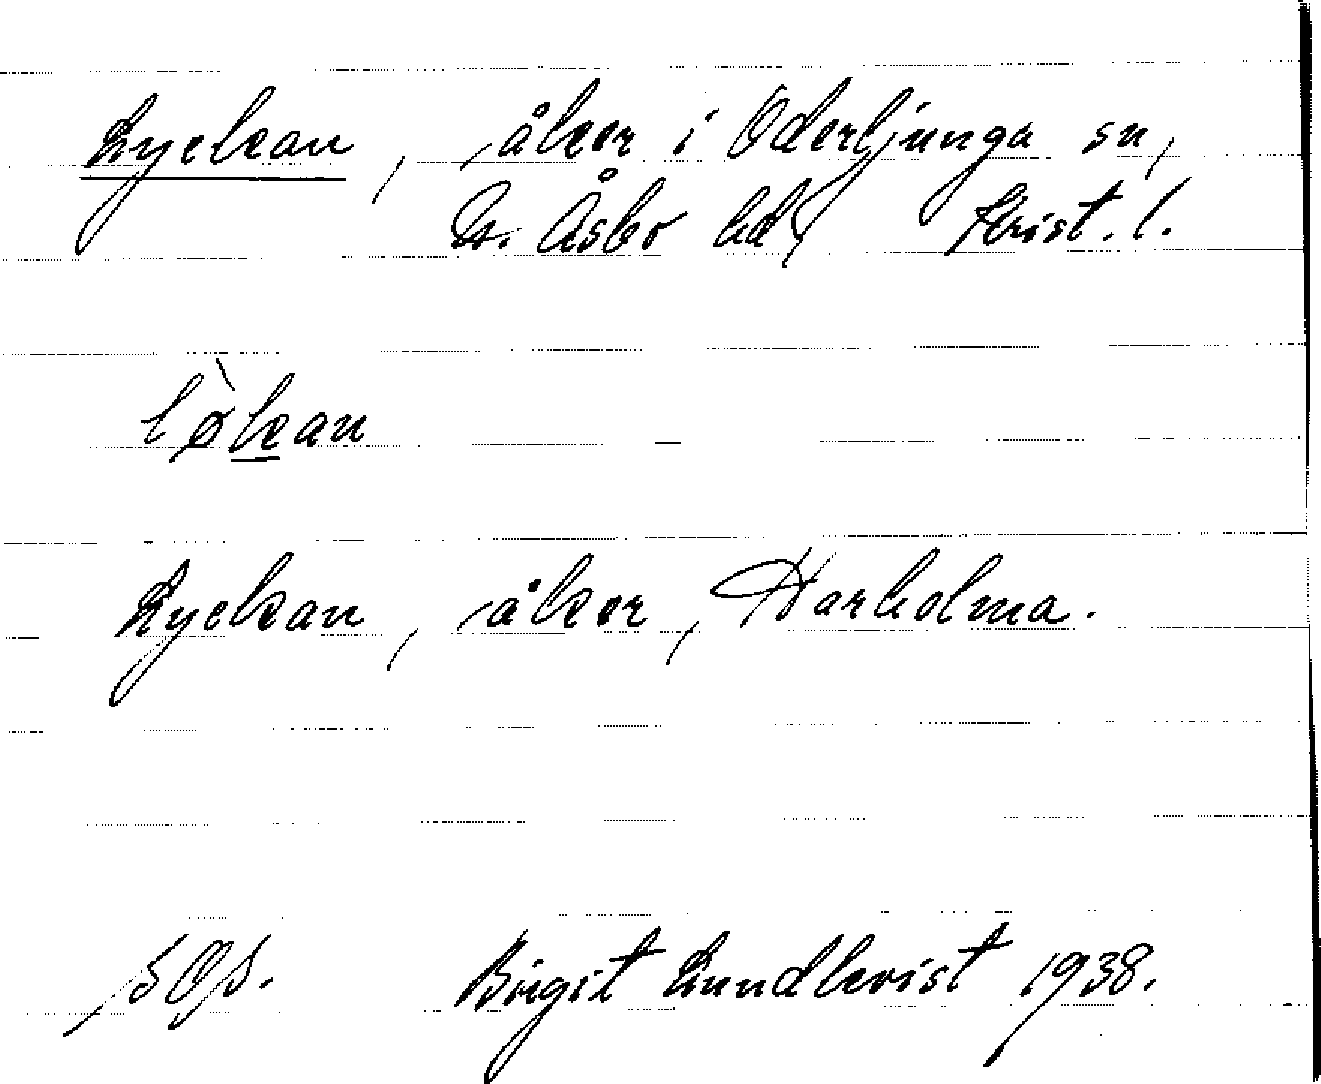 Lyckan, åker i Oderljunga sn,
N. Åsbo hd, Krist. l.
lø̀kan
Lyckan, åker, Harholma.
Birgit Lundkvist 1938.